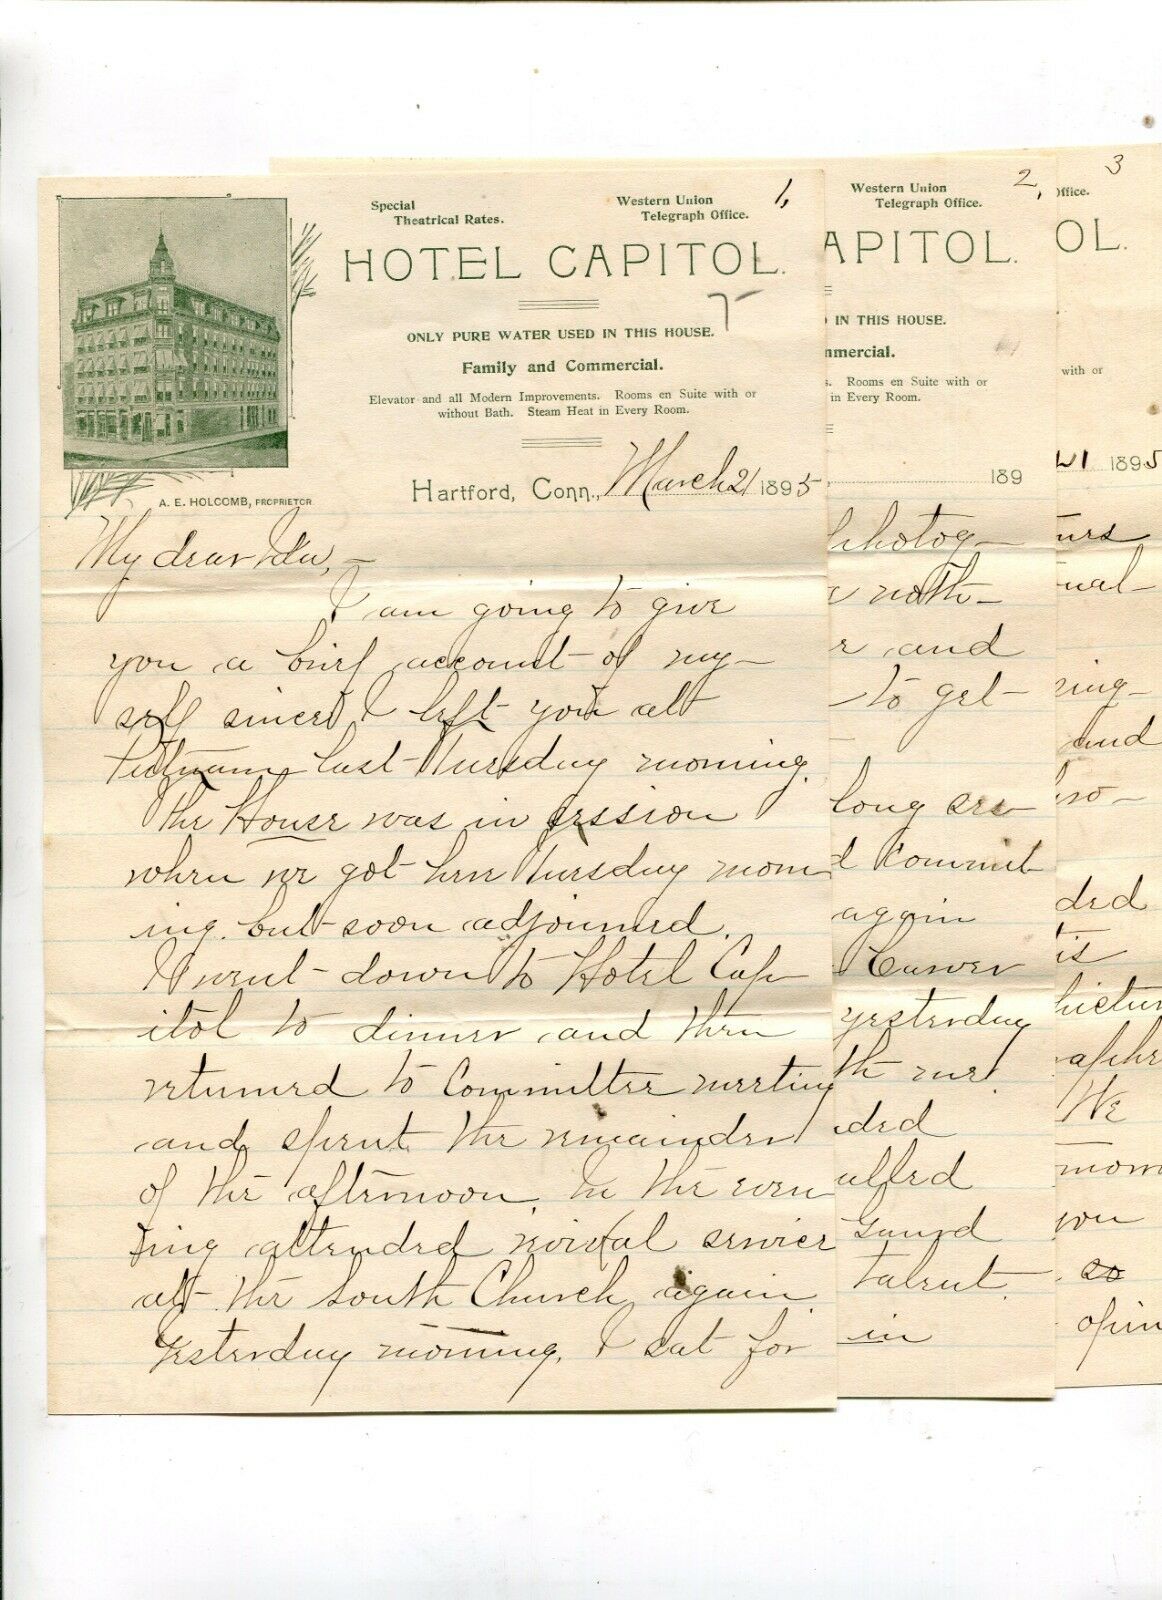 1,
Special
Theatrical Rates.
Western Union
Telegraph Office.
HOTEL CAPITOL.
ONLY PURE WATER USED IN THIS HOUSE.
Family and Commercial.
Elevator and all Modern Improvements. Rooms en Suite with or
without Bath. Steam Heat in Every Room.
A. E. HOLCOMB, PROPRIETOR
Hartford, Conn., March 21 1895
My dear Ida,—
I am going to give
you a brief account of my-
self since I left you at
Putnam last Tuesday morning.
The House was in session
when we got here Tuesday morn
ing. but soon adjourned.
I went down to Hotel Cap
itol to dinner and then
returned to Committee meeting
and spent the remainder
of the afternoon. In the even
ing attended revival service
at the South Church again
Yesterday morning, I sat for
2,
Western Union
Telegraph Office.
APITOL.
IN THIS HOUSE.
mmercial.
s. Rooms en Suite with or
in Every Room.
189
photog-
r and
to get
long
again
yesterday
ded
talent.
in
3
ffice.
OL.
with or
21 1895
and
ded
is
We
you
so